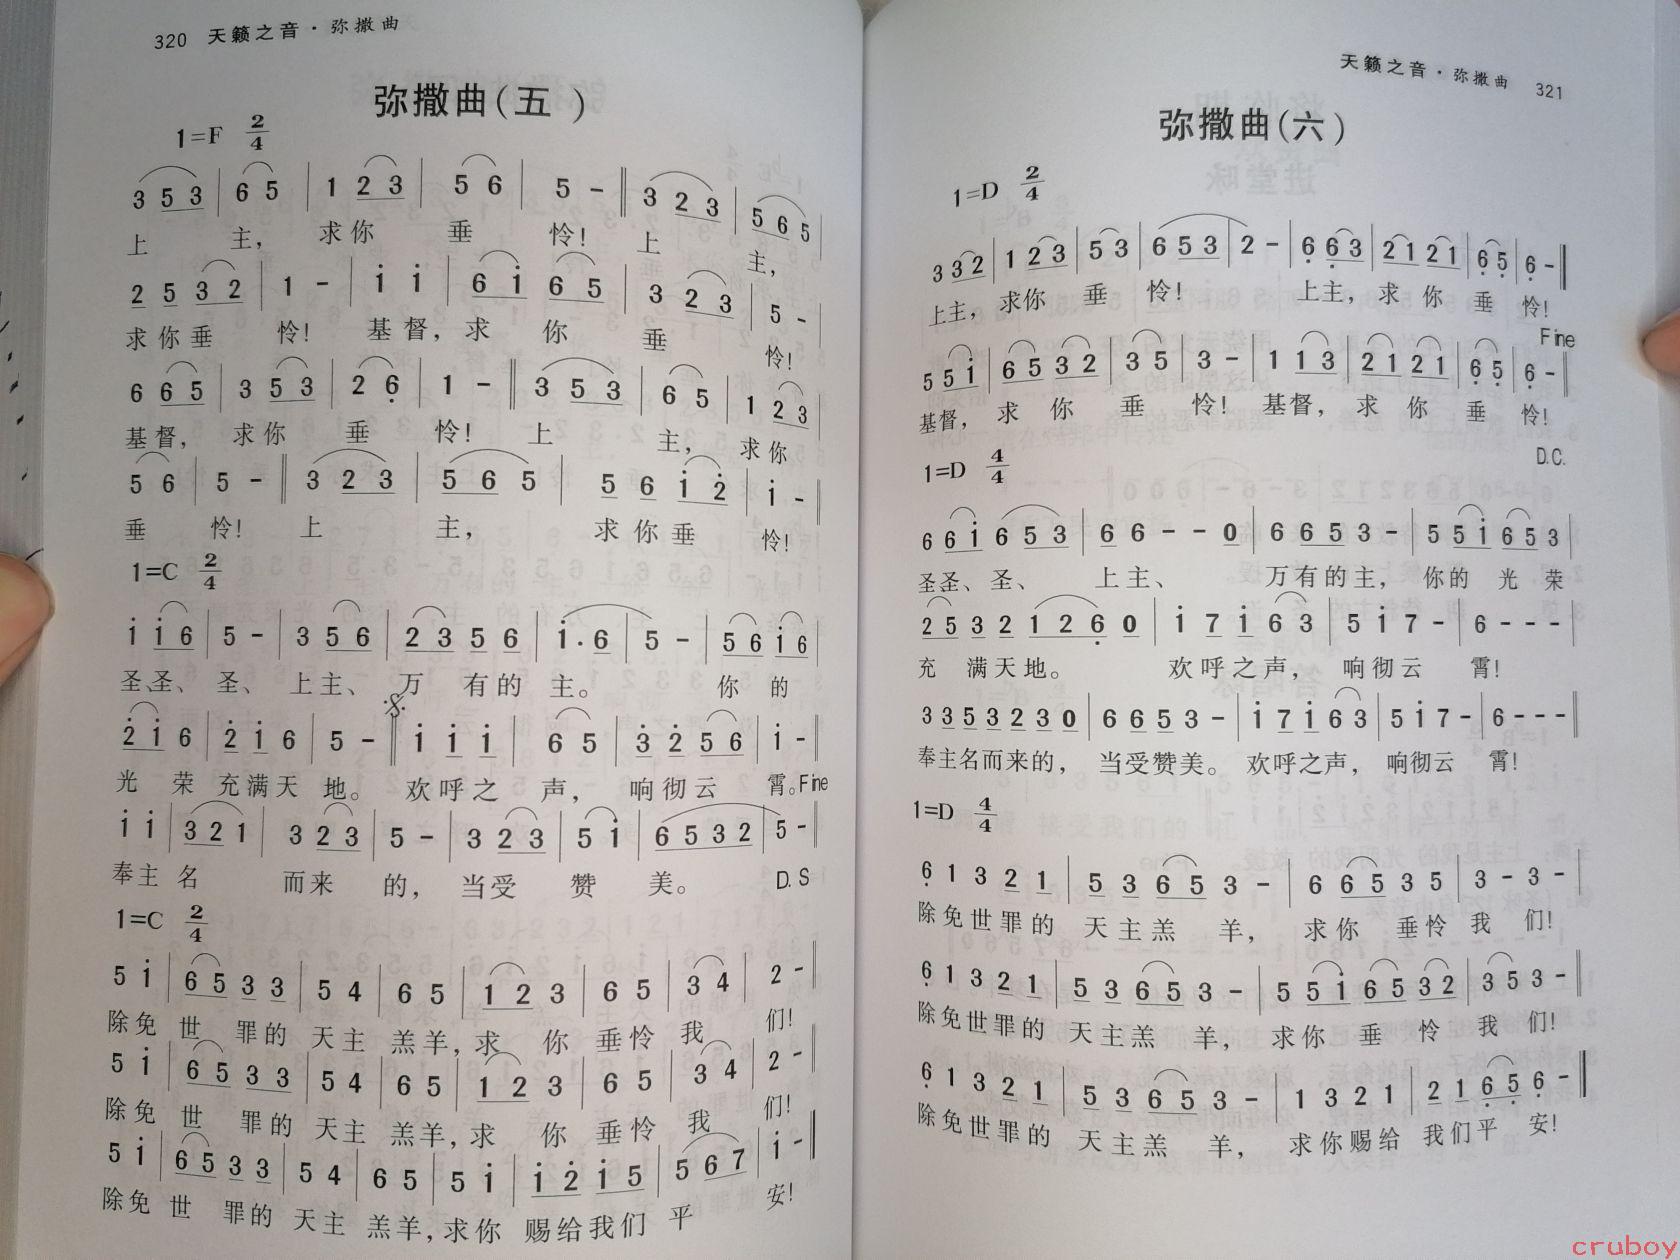 320 天籁之音·弥撒曲
弥撒曲(五)
1=F 2/4
3 5 3 | 6 5 | 1 2 3 | 5 6 | 5 - ‖ 3 2 3 | 5 6 5 |
上 主, 求你 垂 怜! 上 主,
2 5 3 2 | 1 - | i i | 6 i 6 5 | 3 2 3 | 5 - |
求你垂 怜! 基督,求 你 垂 怜!
6 6 5 | 3 5 3 | 2 6̣ | 1 - ‖ 3 5 3 | 6 5 | 1 2 3 |
基督, 求你 垂 怜! 上 主, 求你
5 6 | 5 - ‖ 3 2 3 | 5 6 5 | 5 6 i 2̇ | i - ‖
垂 怜! 上 主, 求你垂 怜!
1=C 2/4
i i 6 | 5 - | 3 5 6 | 2 3 5 6 | i·6 | 5 - | 5 6 i 6 |
圣、圣、 圣、 上主、 万 有的 主。 你 的
2̇ i 6 | 2̇ i 6 | 5 - ‖ i i i | 6 5 | 3̇ 2̇ 5 6 | i - ‖
光 荣 充满天 地。 欢呼之 声, 响彻云 霄。Fine
i i | 3 2 1 | 3 2 3 | 5 - | 3 2 3 | 5 i | 6 5 3 2 | 5 - ‖
奉主 名 而来 的, 当受 赞 美。 D.S
1=C 2/4
5 i | 6 5 3 3 | 5 4 | 6 5 | 1 2 3 | 6 5 | 3 4 | 2 - ‖
除免 世 罪的 天主 羔羊,求 你 垂怜 我 们!
5 i | 6 5 3 3 | 5 4 | 6 5 | 1 2 3 | 6 5 | 3 4 | 2 - ‖
除免 世 罪的 天主 羔羊,求 你 垂怜 我 们!
5 i | 6 5 3 3 | 5 4 | 6 5 | 5 i | i 2̇ i 5 | 5 6 7 | i - ‖
除免 世 罪的 天主 羔羊,求你 赐给我们 平 安!
天籁之音·弥撒曲 321
弥撒曲(六)
1=D 2/4
3 3 2 | 1 2 3 | 5 3 | 6 5 3 | 2 - | 6̣ 6̣ 3 | 2 1 2 1 | 6̣ 5̣ | 6̣ - ‖
上主, 求你 垂 怜! 上主, 求 你 垂 怜!
Fine
5 5 i | 6 5 3 2 | 3 5 | 3 - | 1 1 3 | 2 1 2 1 | 6̣ 5̣ | 6̣ - ‖
基督, 求 你 垂 怜! 基督, 求 你 垂 怜!
D.C.
1=D 4/4
6 6 i 6 5 3 | 6 6 - - 0 | 6 6 5 3 - | 5 5 i 6 5 3 |
圣圣、圣、 上主、 万有的主, 你的 光 荣
2 5 3 2 1 2 6̣ 0 | i 7 i 6 3 | 5 i 7 - | 6 - - - |
充 满天地。 欢呼之声, 响彻云 霄!
3 3 5 3 2 3 0 | 6 6 5 3 - | i 7 i 6 3 | 5 i 7 - | 6 - - - ‖
奉主名而来的, 当受赞美。 欢呼之声, 响彻云 霄!
1=D 4/4
6̣ 1 3 2 1 | 5 3 6 5 3 - | 6 6 5 3 5 | 3 - 3 - |
除免世罪的 天主羔 羊, 求你 垂怜我 们!
6̣ 1 3 2 1 | 5 3 6 5 3 - | 5 5 i 6 5 3 2 | 3 5 3 - ‖
除免世罪的 天主羔 羊, 求你 垂 怜 我 们!
6̣ 1 3 2 1 | 5 3 6 5 3 - | 1 3 2 1 | 2 1 6̣ 5̣ 6̣ - ‖
除免世罪的 天主羔 羊, 求你赐给 我们平 安!
cruboy